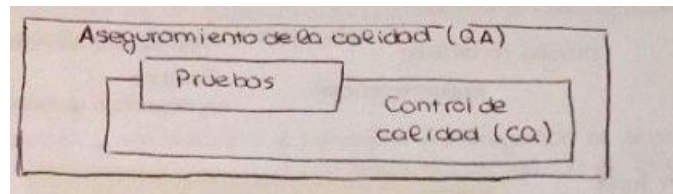 Aseguramiento de la calidad (QA)
Pruebas
Control de
calidad (CQ)